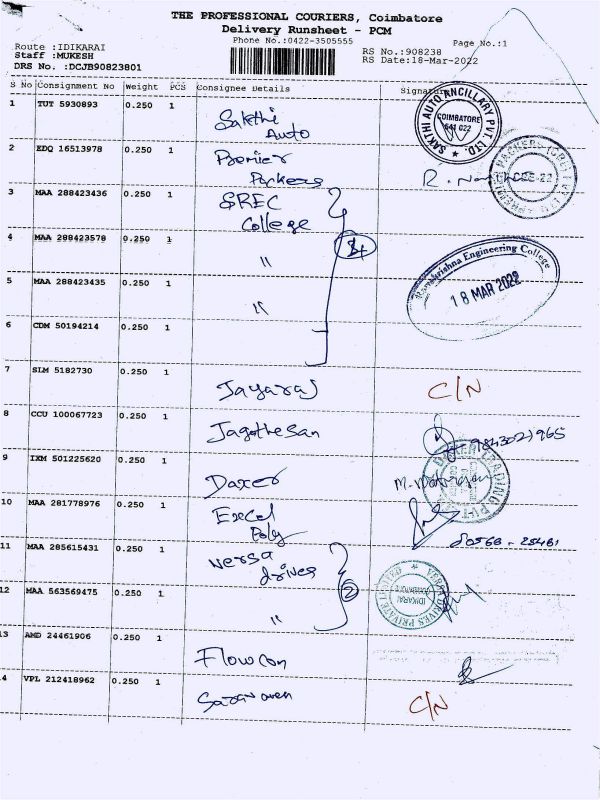 THE PROFESSIONAL COURIERS, Coimbatore
Delivery Runsheet - PCM
Phone No.:0422-3505555
Page No.:1
Route :IDIKARAI
Staff :MUKESH
DRS No. :DCJB90823801
RS No.:908238
RS Date:18-Mar-2022
S No Consignment No Weight PCS Consignee Details Signature
1 TUT 5930893 0.250 1 Sakthi Auto
SAKTHI AUTO ANCILLARY PVT. LTD.
COIMBATORE 641 022
2 EDQ 16513978 0.250 1 Premier Packers
CBE-22
3 MAA 288423436 0.250 1 SREC College
4 MAA 288423578 0.250 1 "
Ramakrishna Engineering College
18 MAR 2022
5 MAA 288423435 0.250 1 "
6 CDM 50194214 0.250 1
7 SLM 5182730 0.250 1 Jayaraj C/N
8 CCU 100067723 0.250 1 Jagathesan
9843021965
9 IXM 501225620 0.250 1 Daxer
TRADING PVT
10 MAA 281778976 0.250 1 Excel Poly
80568-25481
11 MAA 285615431 0.250 1 versa drives
2
DRIVES PRIVATE LIMITED
IDIKARAI
12 MAA 563569475 0.250 1 "
13 AMD 24461906 0.250 1 Flowcon
14 VPL 212418962 0.250 1 Saravanen C/N